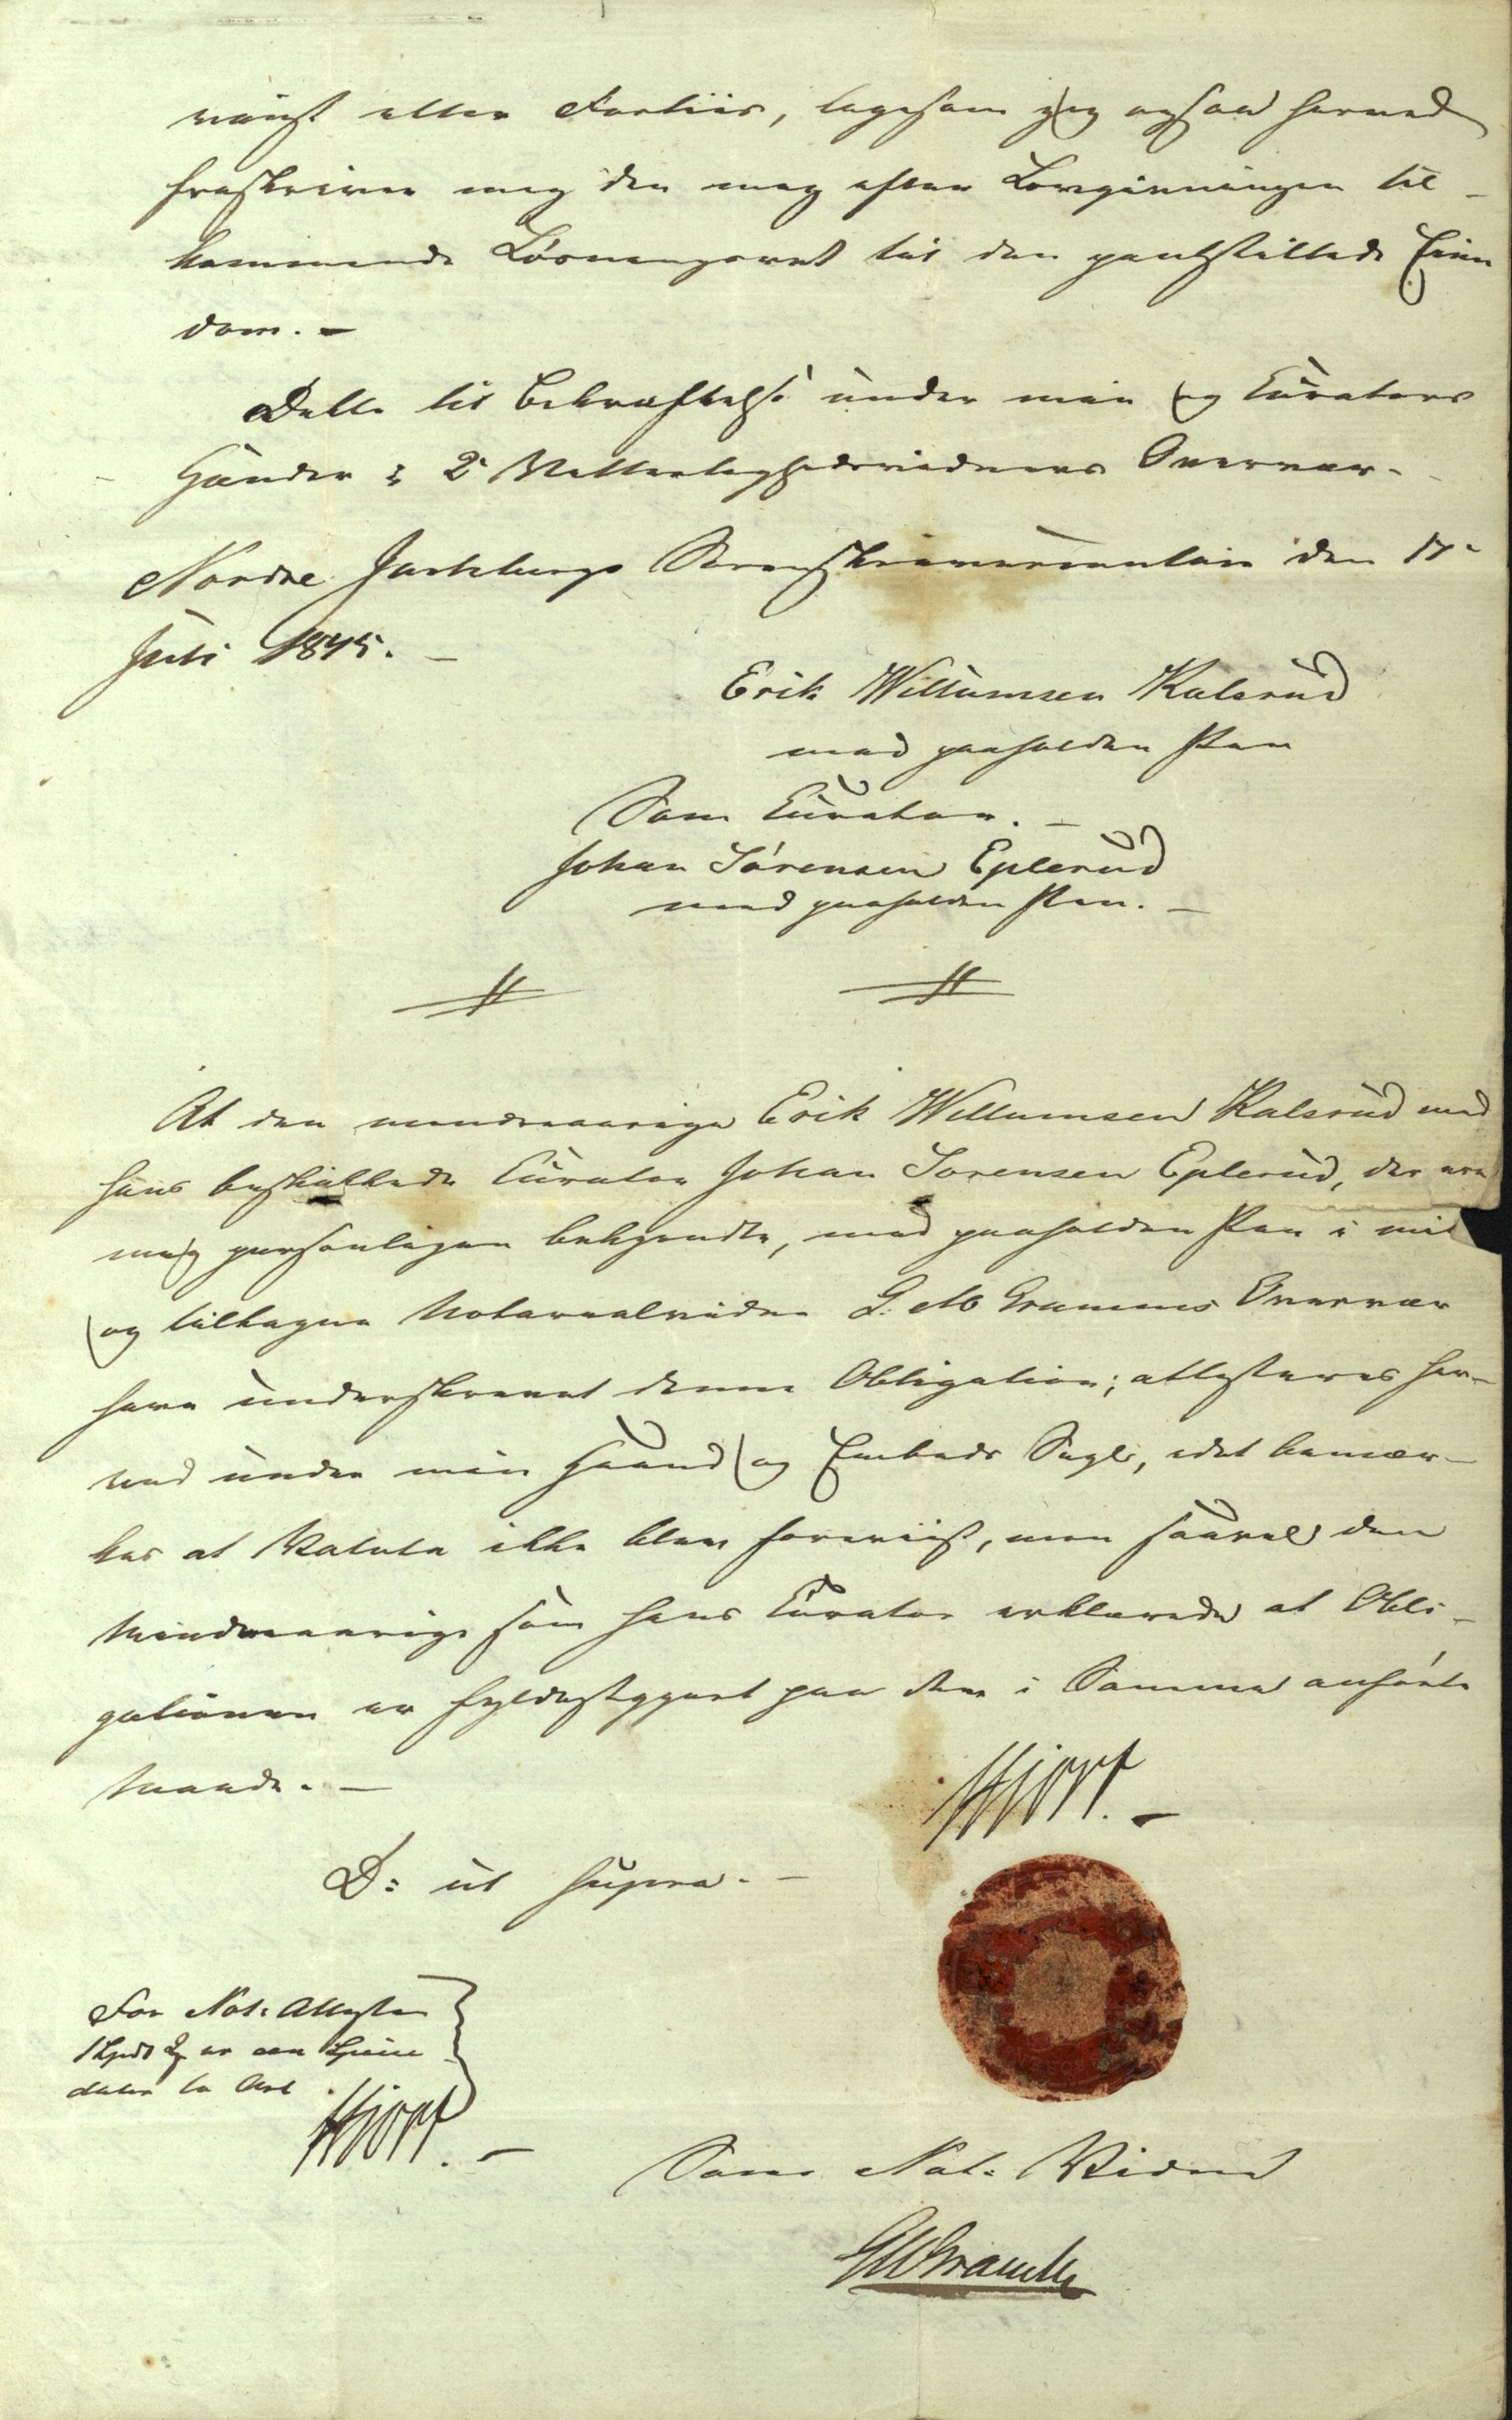 viist eller Forliis, ligesom jeg ogsaa herved
fraskriver mig den mig efter Lovgivningen til-
kommende Løsningsret til den pantstillede Eien
dom. –
Dette til Bekræftelse under min og Curators
Hænder i 2 Vitterlighedsvidners Overvær.
Nordre Jarlsbergs Sorenskrivercontoir den 17
Juli 1845. –
Erik Willumsen Kalsrud
med paaholden Pen
Som Curator. –
Johan Sørensen Eplerud
med paaholden Pen. –
At den mindreaarige Erik Willumsen Kalsrud med
hans beskikkede Curator Johan Sorensen Eplerud, der ere
mig personligen bekjendte, med paaholden Pen i mit
og tiltagne Notarialvidne G. M Grammes Overvær
have underskrevet denne Obligation; attesteres her-
ved under min Haand og Embeds Segl, idet bemær-
kes at Valuta ikke blev foreviist, men saavel den
Mindreaarige som hans Curator erklærede at Obli-
gationen er fyldestgjort paa den i Samme anførte
Maade. –
Hjort. –
D: ut supra. –
For Not: Attesten
er
Hjort. –
Som Not: Vidne